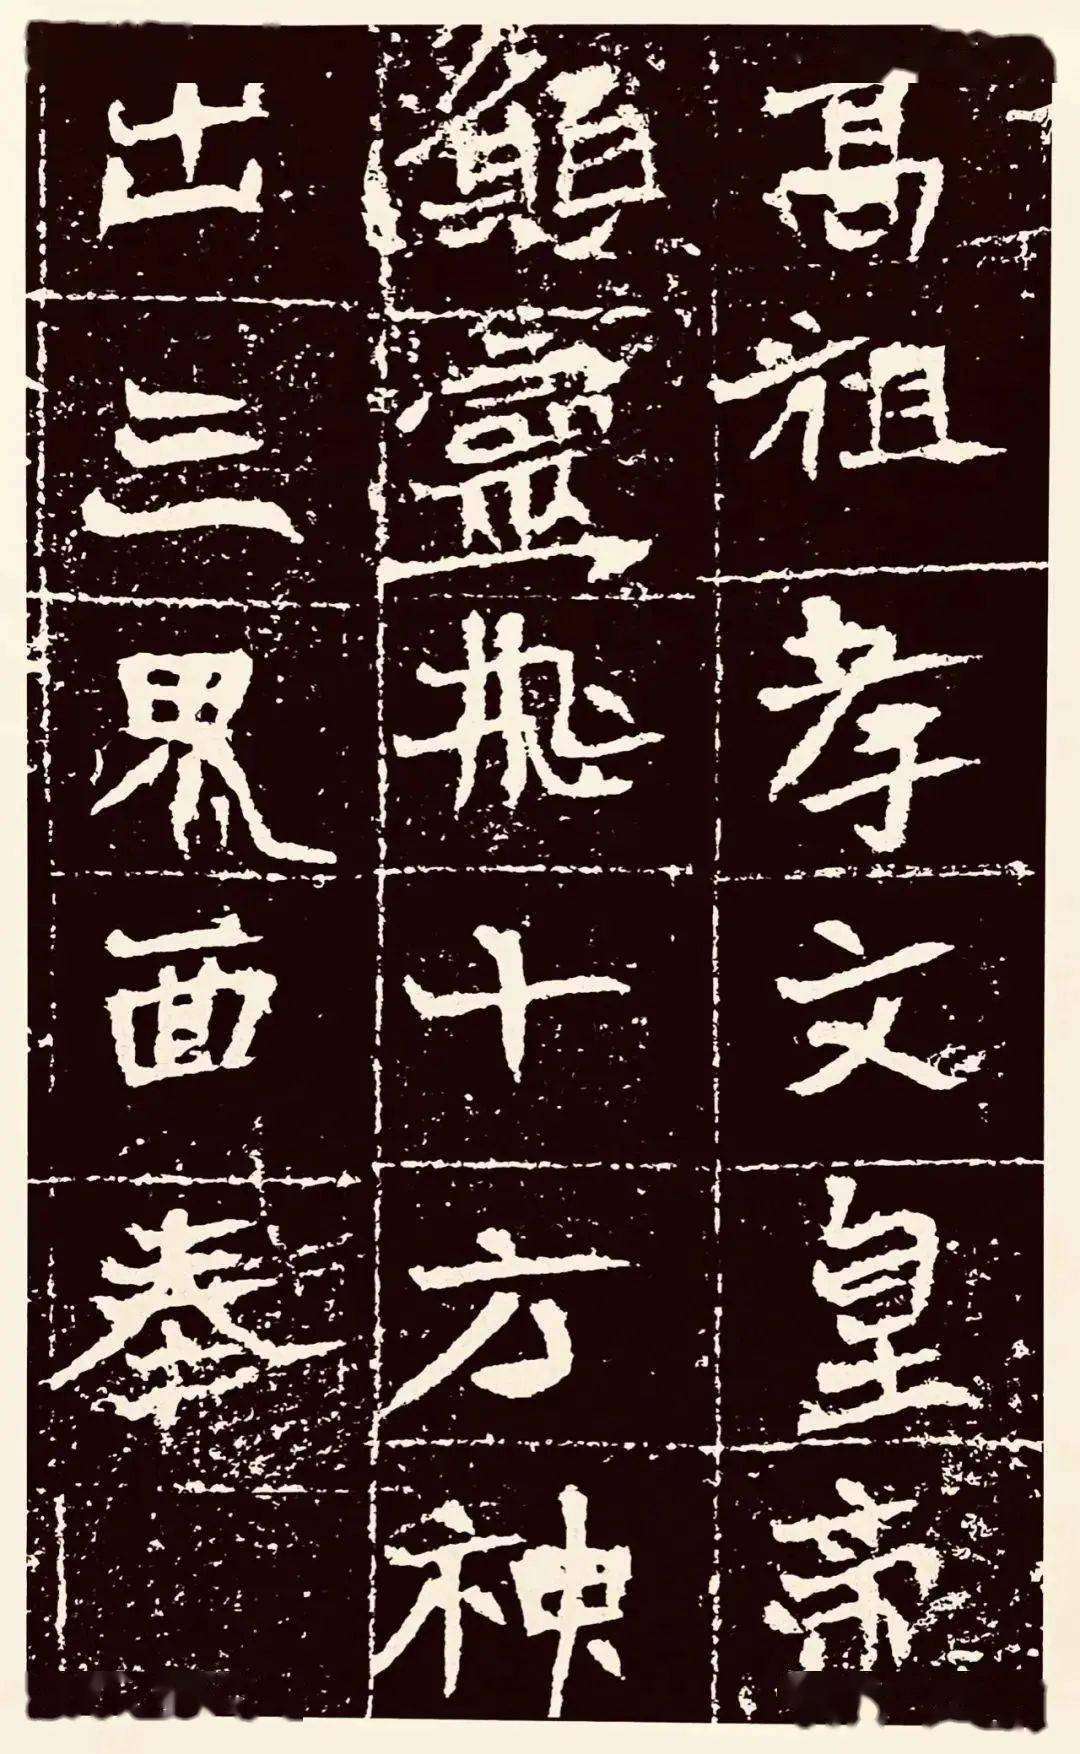 高祖孝文皇帝
靈飛十方神
出三界面奉